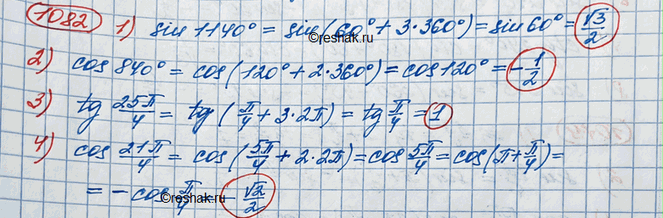 1082 1) sin 1140° = sin(60° + 3·360°) = sin 60° = √3/2
©reshak.ru
2) cos 840° = cos(120° + 2·360°) = cos 120° = -1/2
3) tg 25π/4 = tg(π/4 + 3·2π) = tg π/4 = 1
4) cos 21π/4 = cos(5π/4 + 2·2π) = cos 5π/4 = cos(π + π/4) =
= - cos π/4 = - √2/2
©reshak.ru